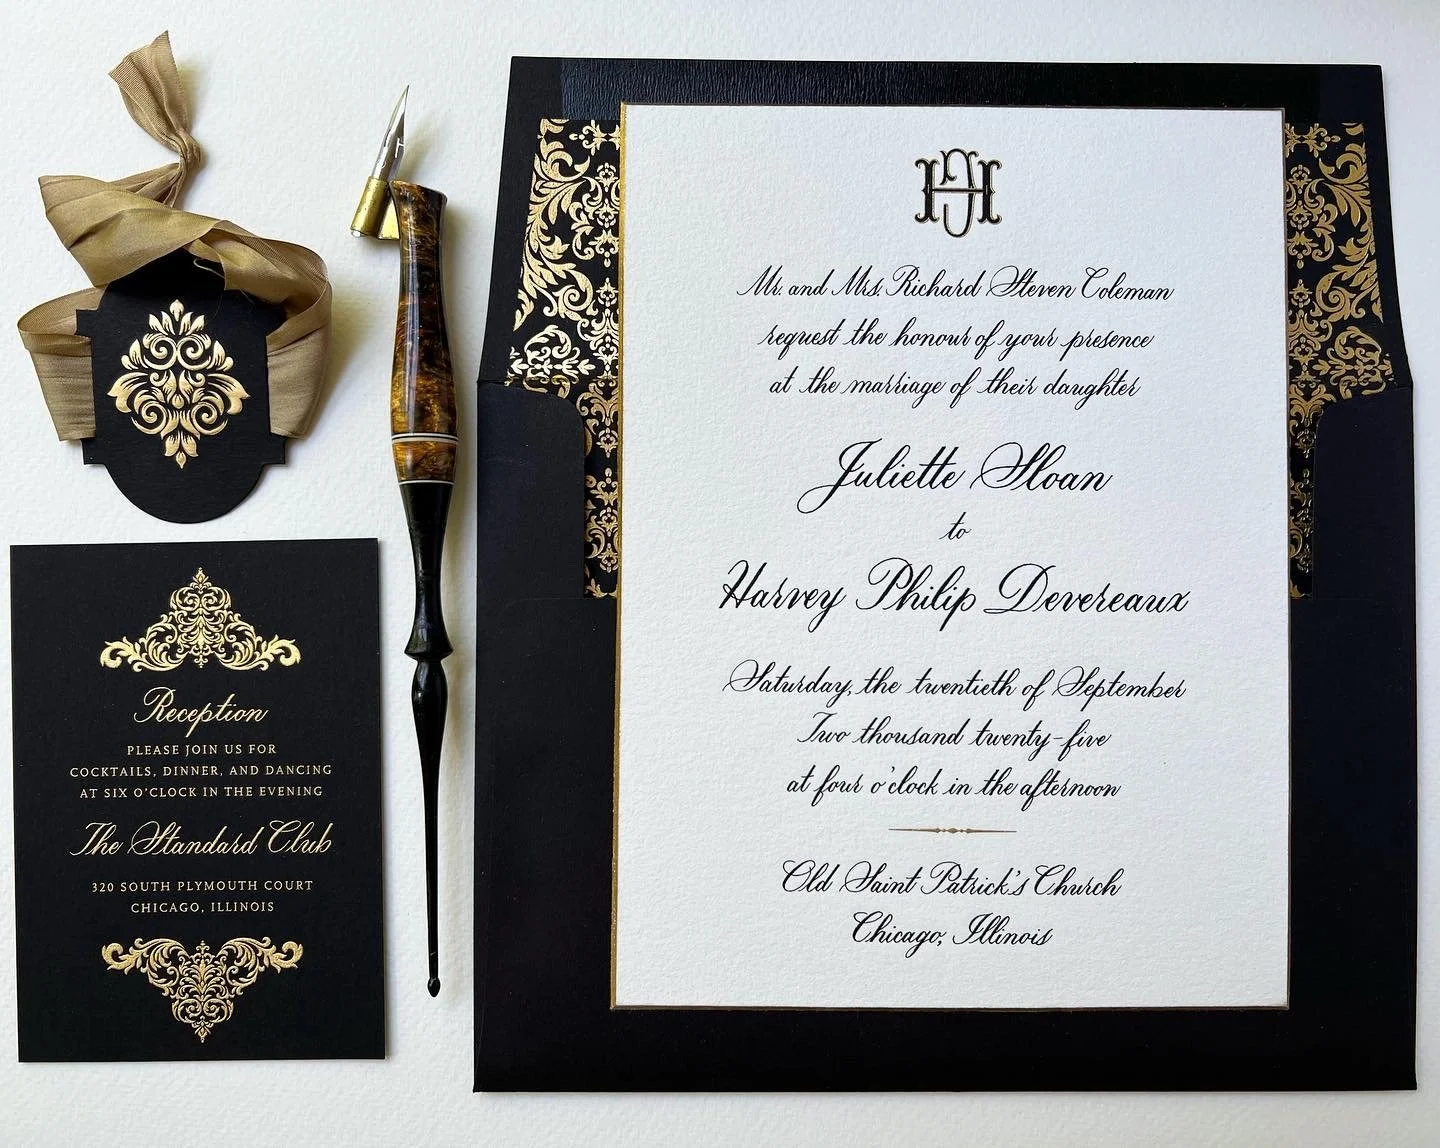 HJ
Mr. and Mrs. Richard Steven Coleman
request the honour of your presence
at the marriage of their daughter
Juliette Sloan
to
Harvey Philip Devereaux
Saturday, the twentieth of September
Two thousand twenty-five
at four o'clock in the afternoon
Old Saint Patrick's Church
Chicago, Illinois
Reception
PLEASE JOIN US FOR
COCKTAILS, DINNER, AND DANCING
AT SIX O'CLOCK IN THE EVENING
The Standard Club
320 SOUTH PLYMOUTH COURT
CHICAGO, ILLINOIS